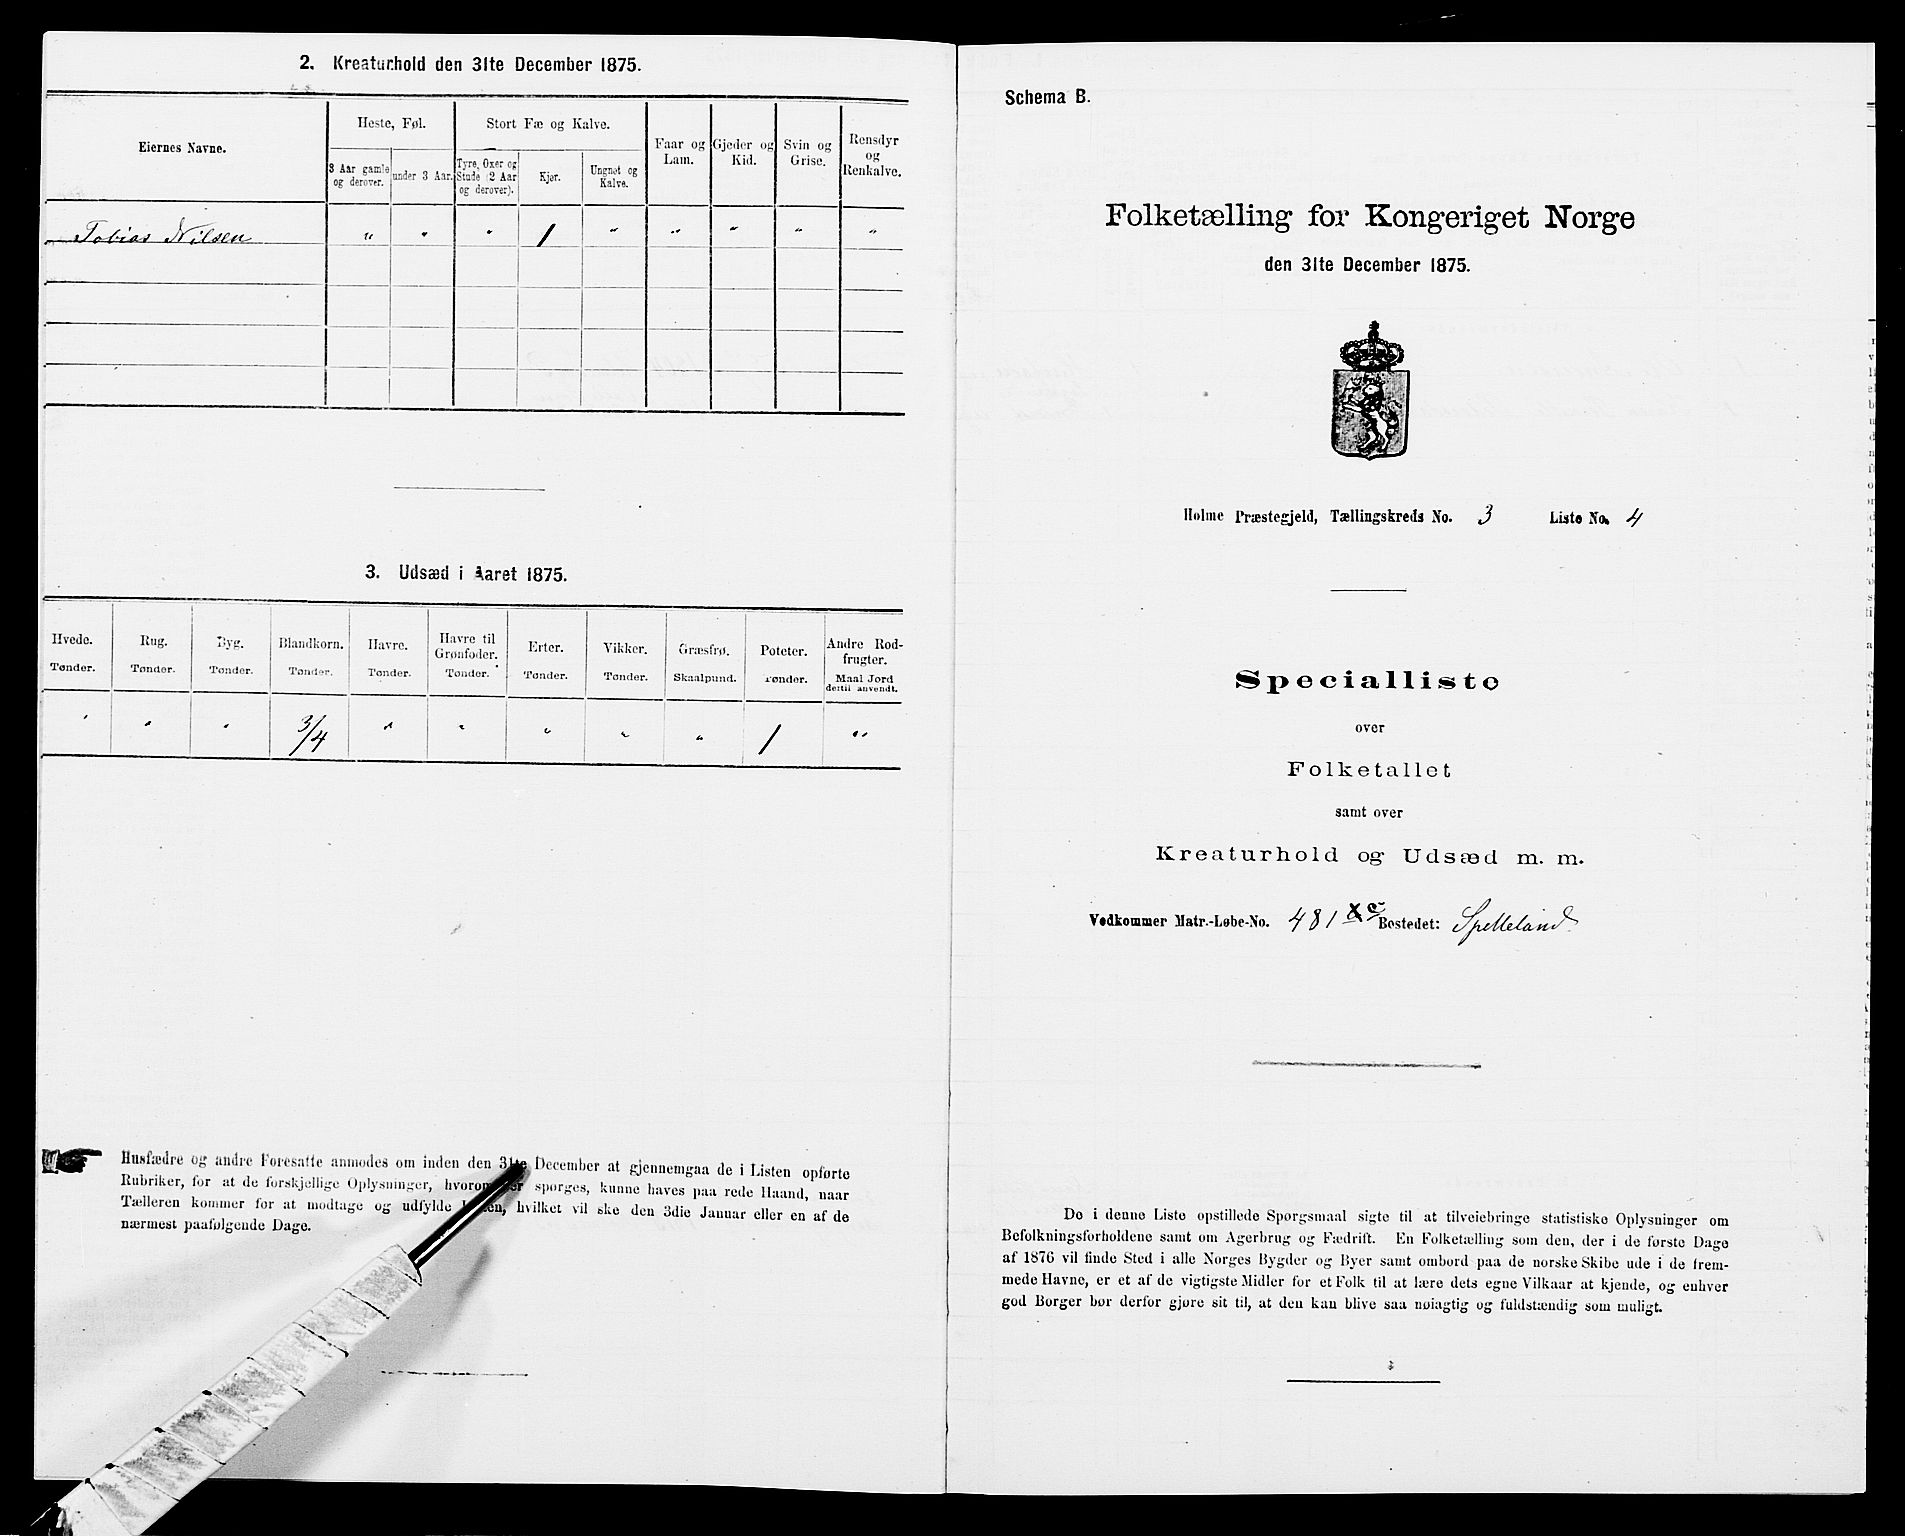 2. Kreaturhold den 31te December 1875.
Eiernes Navne.
Heste, Føl.
Stort Fæ og Kalve.
Faar og Lam.
Gjeder og Kid.
Svin og Grise.
Rensdyr og Renkalve.
3 Aar gamle og derover.
under 3 Aar.
Tyre, Oxer og Stude (2 Aar og derover).
Kjør.
Ungnøt og Kalve.
Tobias Nilsen " " " 1 " " " " "
3. Udsæd i Aaret 1875.
Hvede. Rug. Byg. Blandkorn. Havre. Havre til Grønfoder. Erter. Vikker. Græsfrø. Poteter. Andre Rodfrugter.
Tønder. Tønder. Tønder. Tønder. Tønder. Tønder. Tønder. Tønder. Skaalpund. Tønder. Maal Jord dertil anvendt.
" " " 3/4 " " " " " 1 "
Husfædre og andre Foresatte anmodes om inden den 31te December at gjennemgaa de i Listen opførte
Rubriker, for at de forskjellige Oplysninger, hvorom der spørges, kunne haves paa rede Haand, naar
Tælleren kommer for at modtage og udfylde Listen, hvilket vil ske den 3die Januar eller en af de
nærmest paafølgende Dage.
Schema B.
Folketælling for Kongeriget Norge
den 31te December 1875.
Holme Præstegjeld, Tællingskreds No. 3 Liste No. 4
Specialliste
over
Folketallet
samt over
Kreaturhold og Udsæd m. m.
Vedkommer Matr.-Løbe-No. 481 c Bostedet: Spelleland
De i denne Liste opstillede Spørgsmaal sigte til at tilveiebringe statistiske Oplysninger om
Befolkningsforholdene samt om Agerbrug og Fædrift. En Folketælling som den, der i de første Dage
af 1876 vil finde Sted i alle Norges Bygder og Byer samt ombord paa de norske Skibe ude i de frem-
mede Havne, er et af de vigtigste Midler for et Folk til at lære dets egne Vilkaar at kjende, og enhver
god Borger bør derfor gjøre sit til, at den kan blive saa nøiagtig og fuldstændig som muligt.